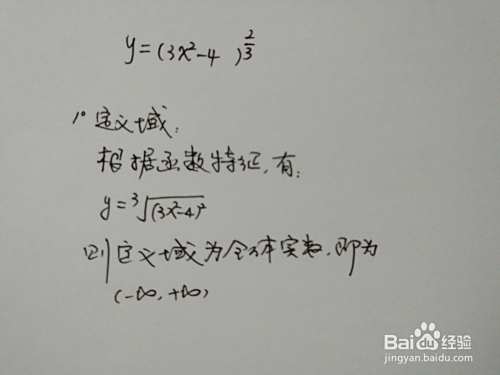 y=(3x²-4 )^{2/3}
1° 定义域:
根据函数特征,有:
y=³√(3x²-4)²
则定义域为全体实数,即为
(-∞,+∞)
Baidu 经验
jingyan.baidu.com